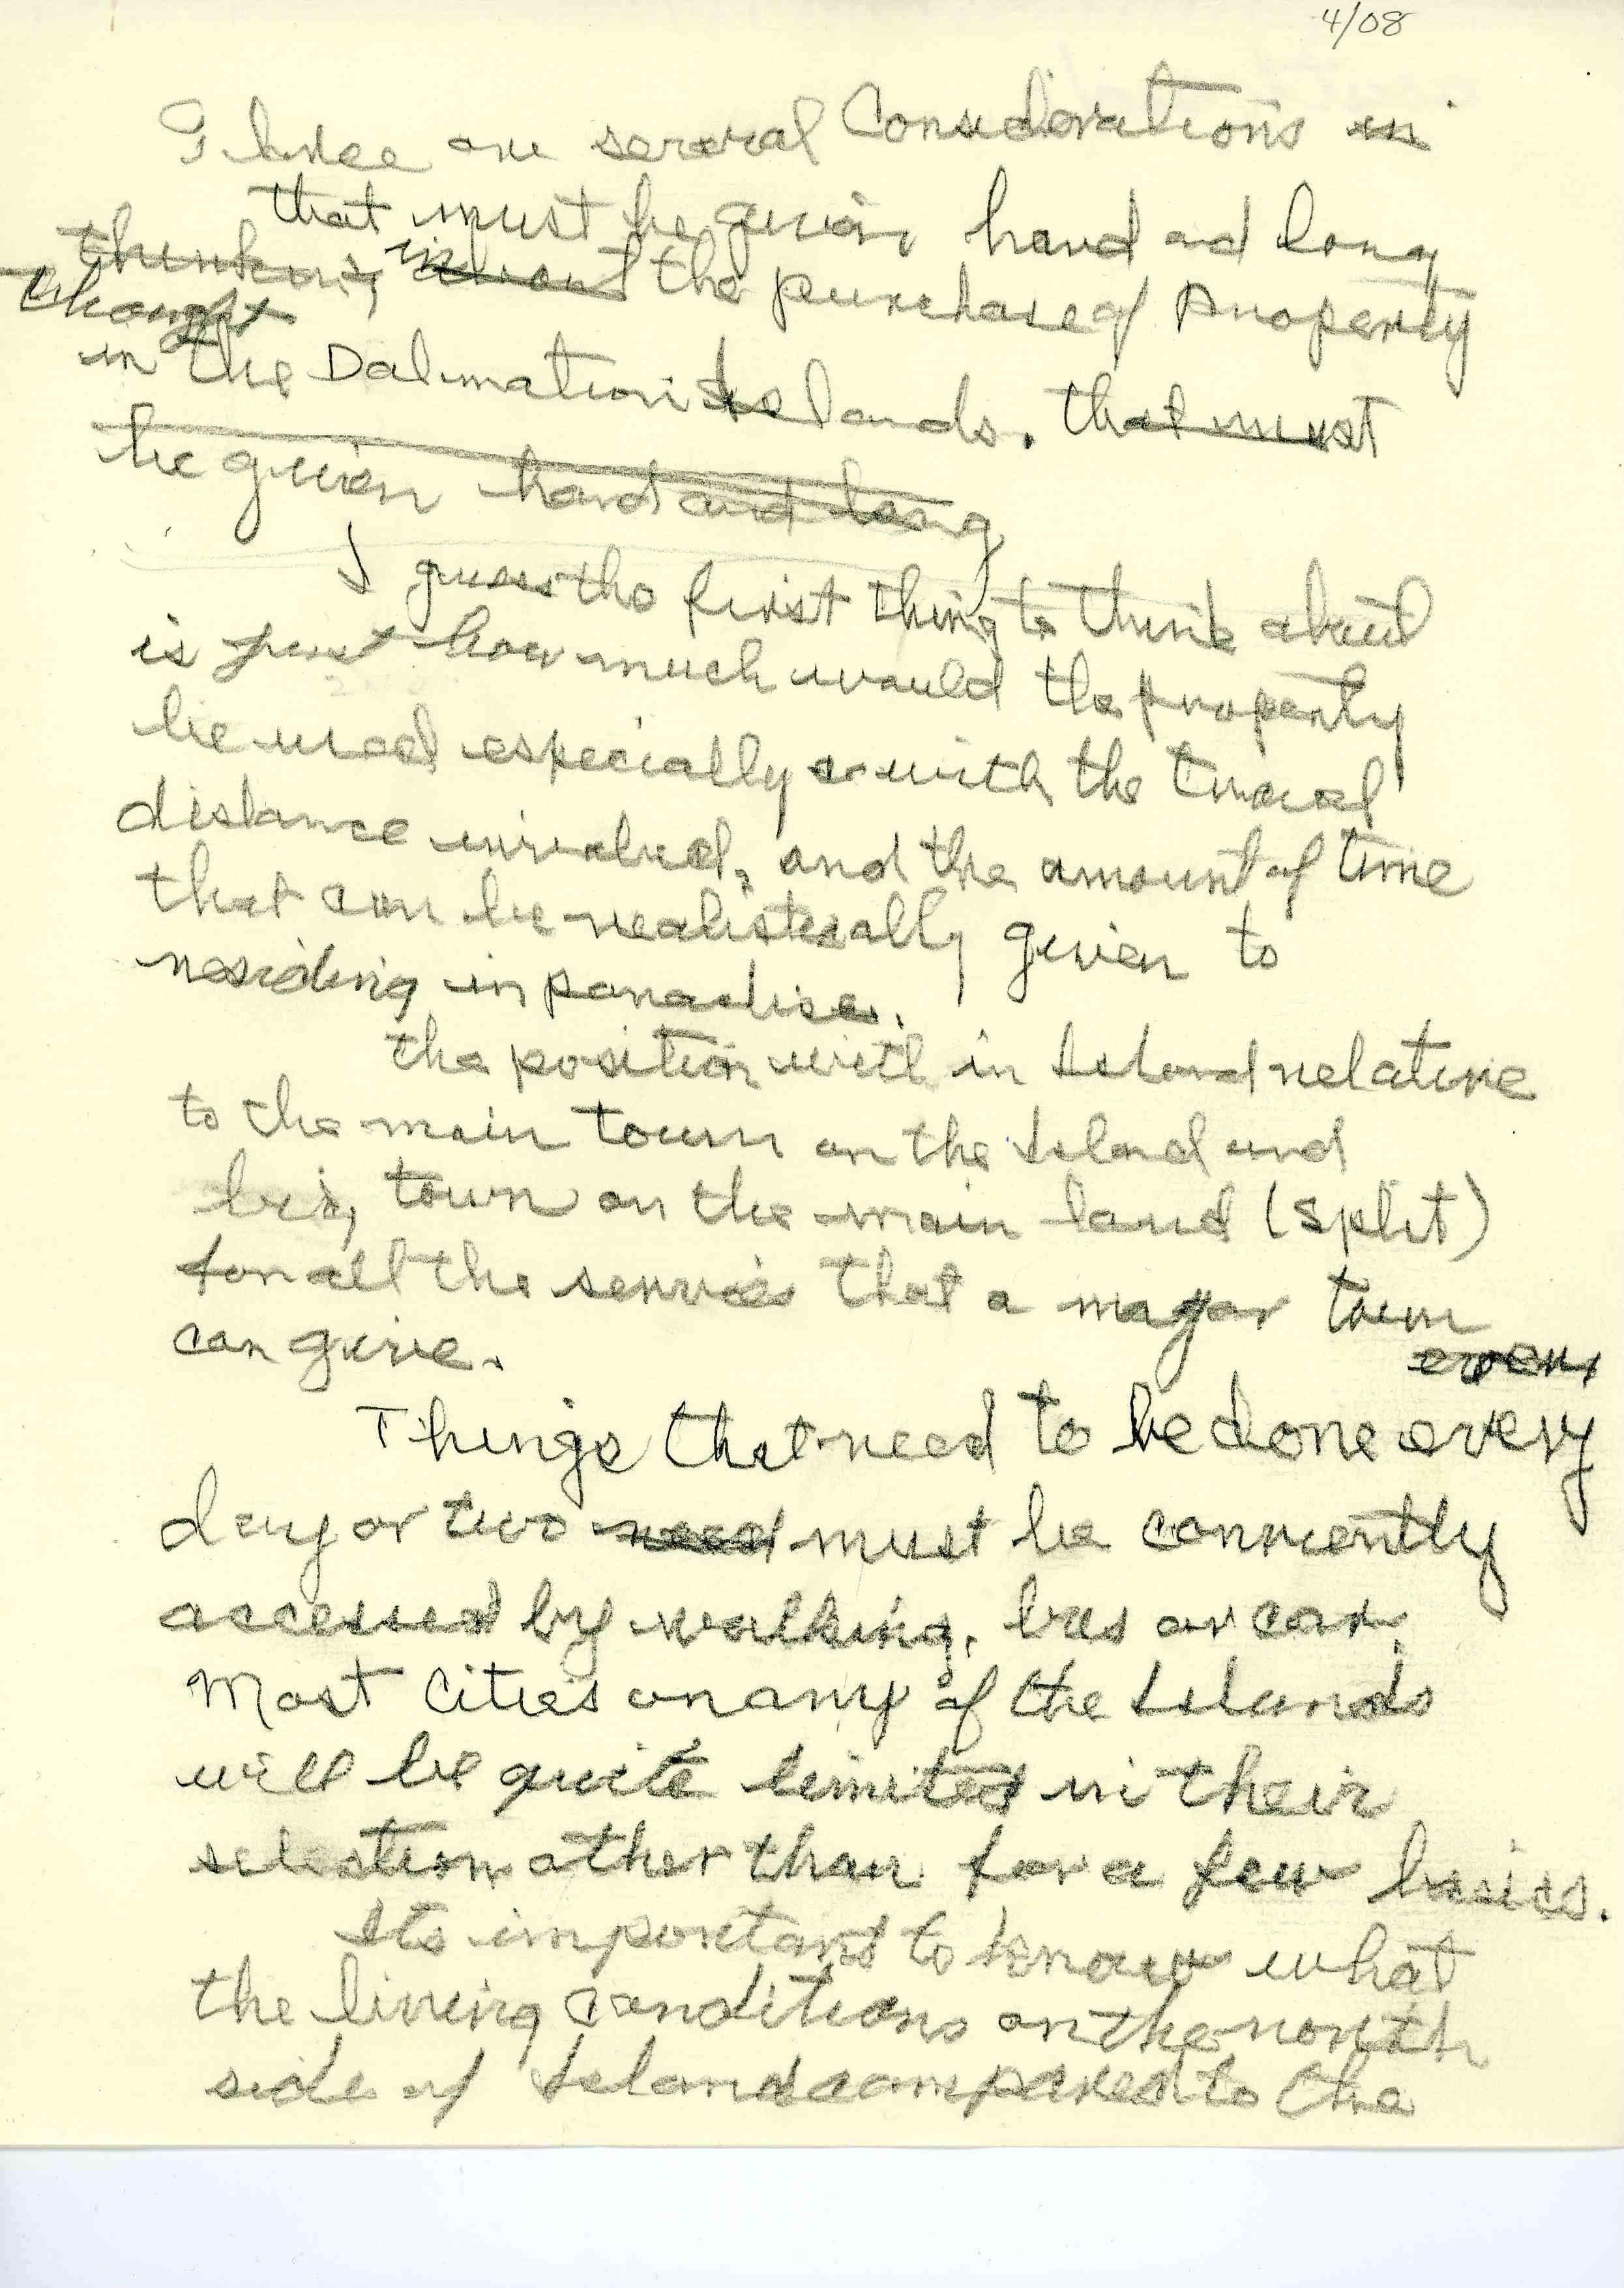 4/08
There are several Considerations in
that must be given hard and long
thinking in about the purchase of Property
thought
in the Dalmation Islands. that must
be given hard and long
I guess the first thing to think about
is just how much would the property
be used especially with the travel
distance involved, and the amount of time
that can be realistically given to
residing in paradise.
the position with in Island relative
to the main town on the Island and
big town on the main land (split)
for all the services that a major town
can give.
even
Things that need to be done every
day or two need must be conveniently
accessed by walking, bus or car.
Most Cities on any of the Islands
will be quite limited in their
selection other than for a few basics.
Its important to know what
the living conditions on the north
side of Island compared to the